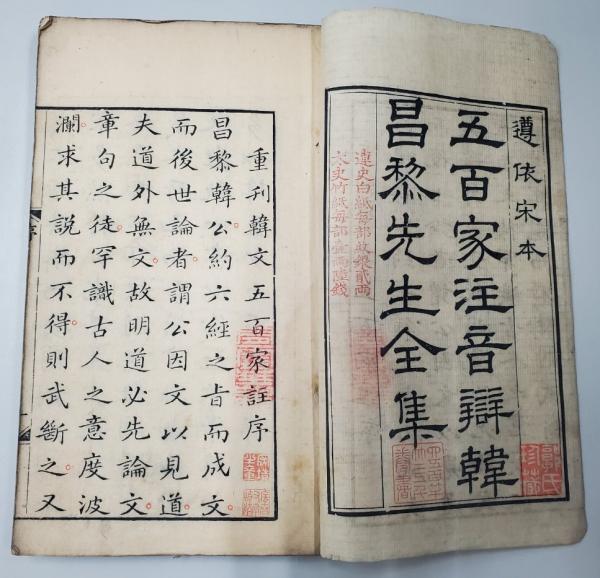 遵依宋本
五百家注音辯韓
昌黎先生全集
連史白紙每部紋銀貳兩
太史竹紙每部壹兩陸錢
重刊韓文五百家註序
昌黎韓公約六經之旨而成文
而後世論者謂公因文以見道
夫道外無文故明道必先論文
章句之徒罕識古人之意度波
瀾求其說而不得則武斷之又
序